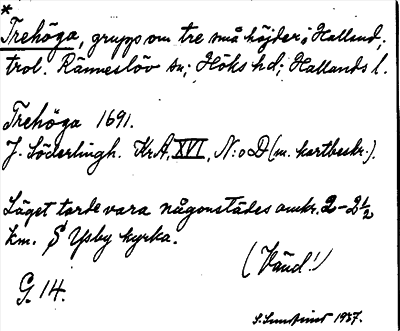 *
Trehöga, grupp om tre små höjder i Halland;
trol. Ränneslöv sn; Höks hd; Hallands l.
Trehöga 1691.
J. Söderlingh. KrA, XVI, N:o D (m. kartbeskr.).
Läget torde vara någonstädes omkr. 2-2½
km. S Ysby kyrka.
(Vänd!)
G. 14.
1937.